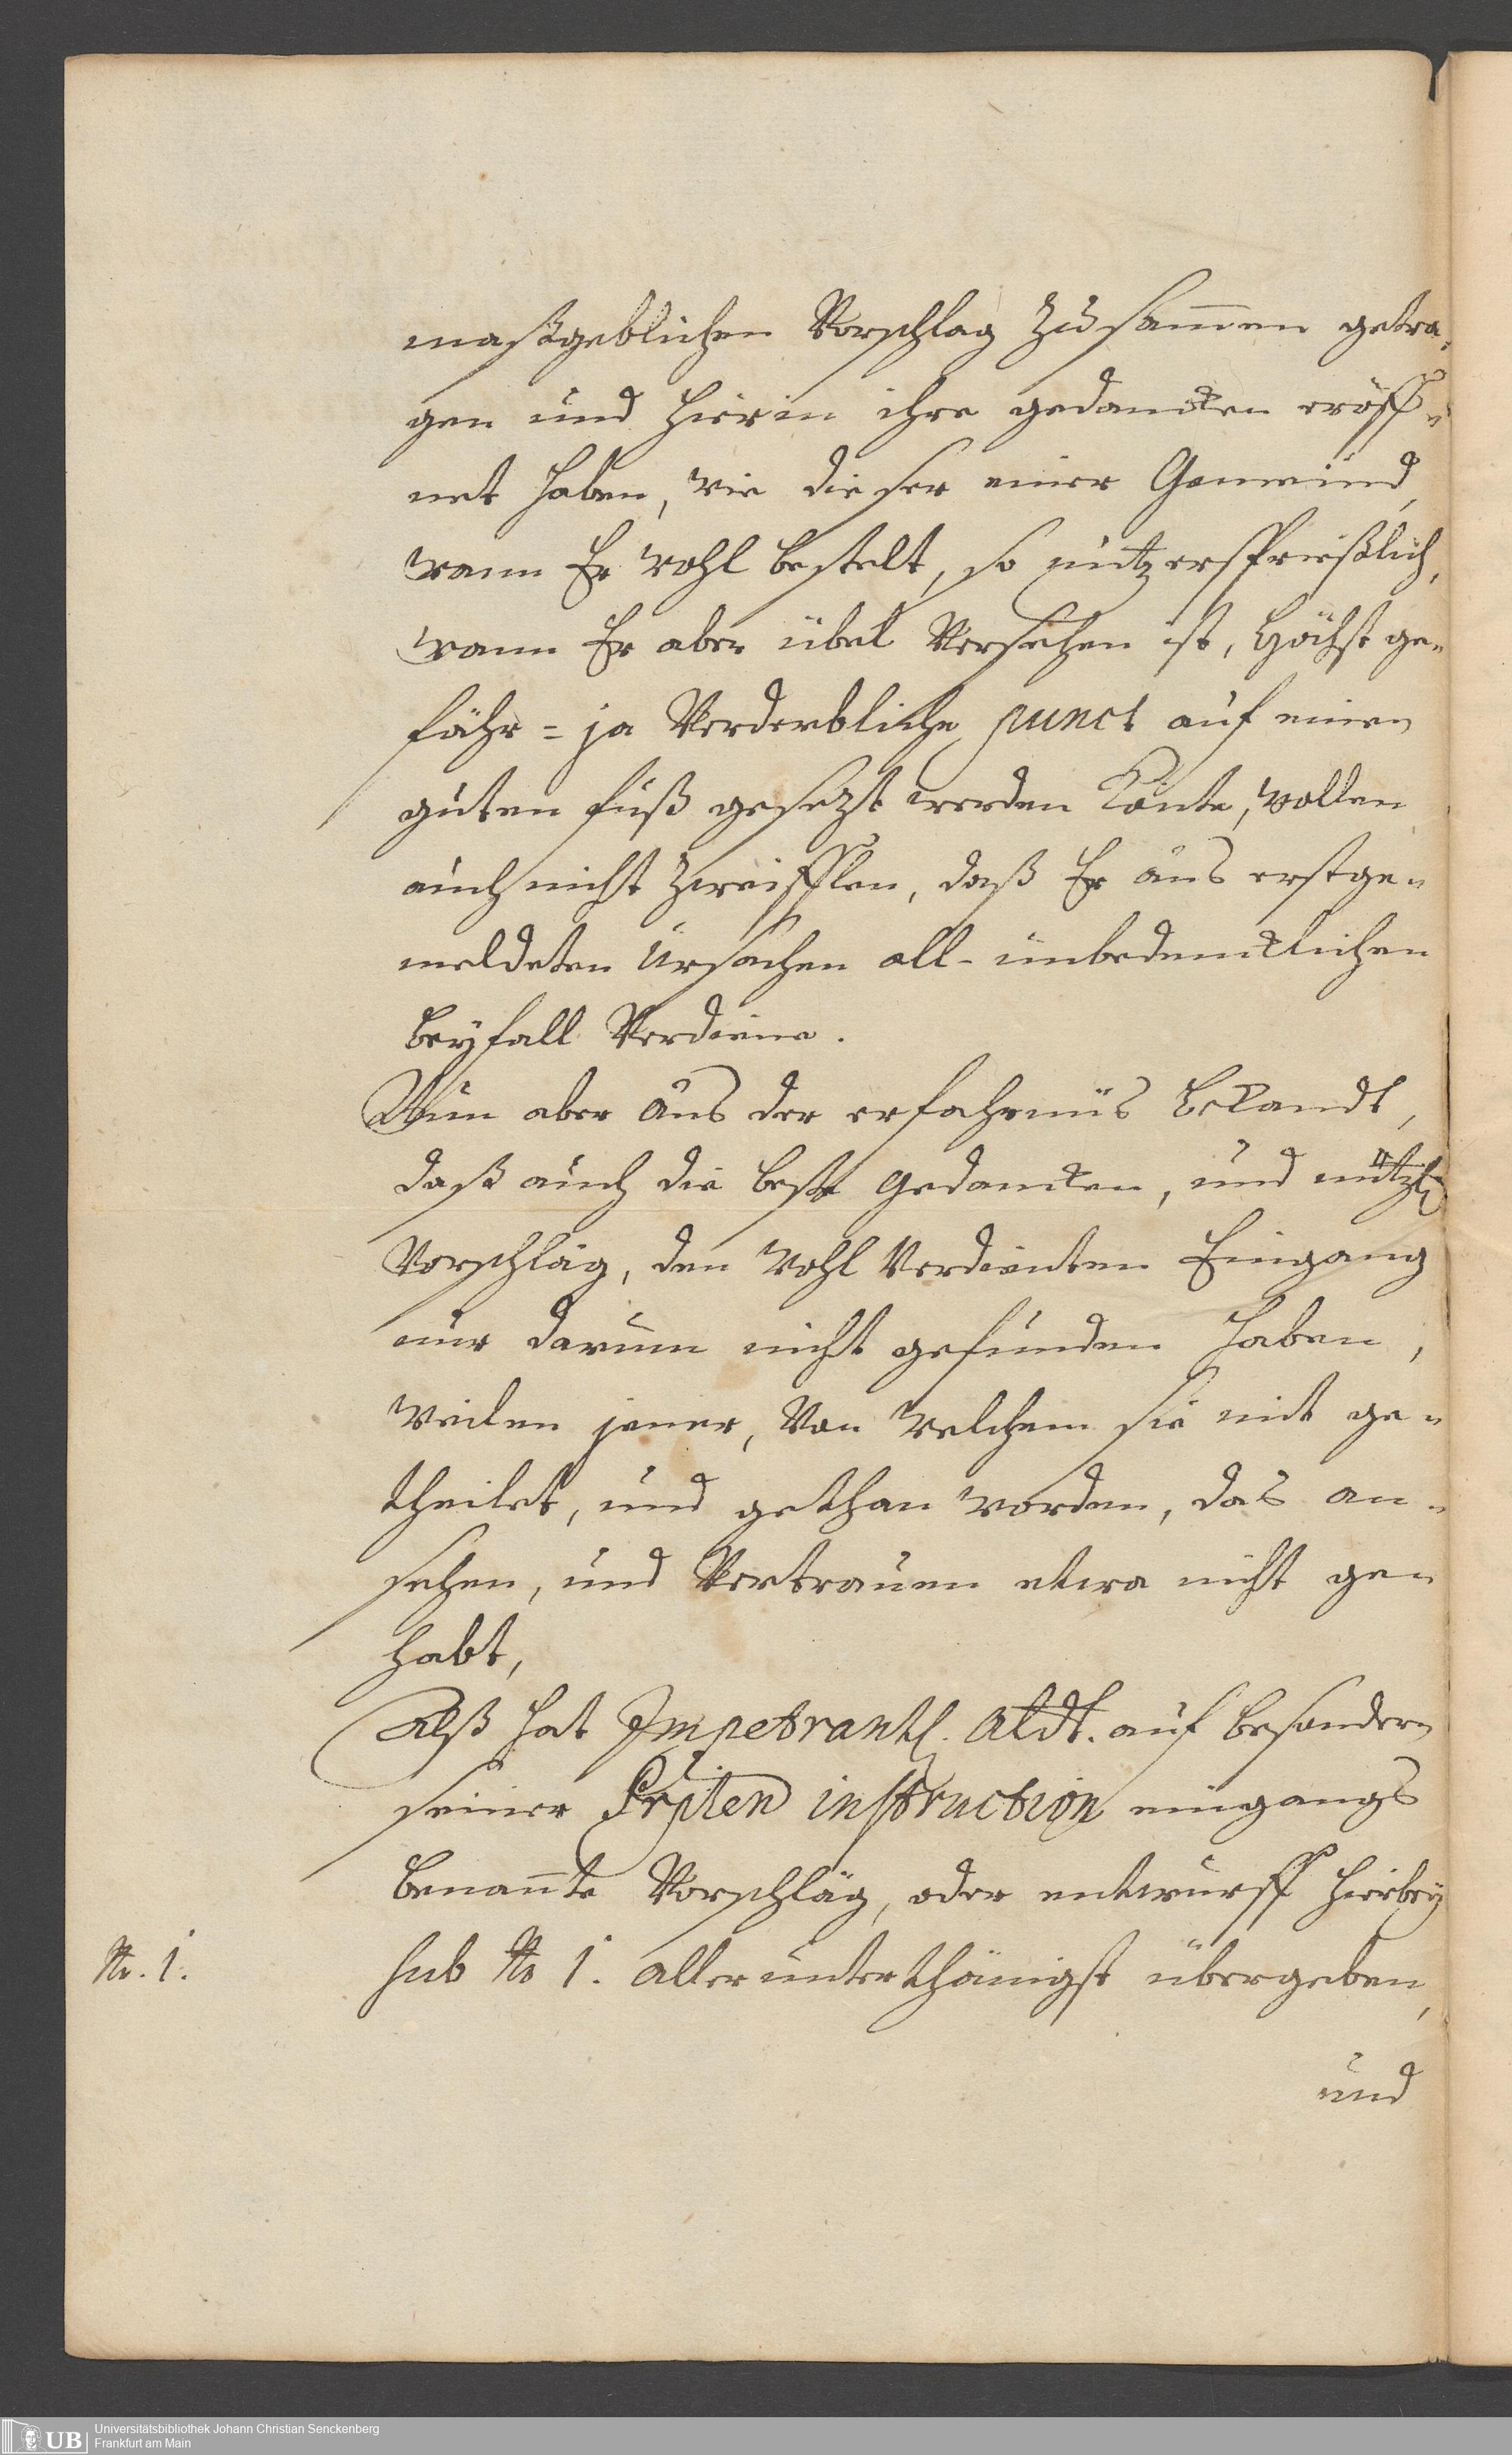 maßgeblichen Vorschlag zusam̄en getra-
gen und hierin ihre gedancken eröff-
net haben, wie dieser einer Gemeind,
wann Er wohl bestelt, so nutzersprießlich,
wann Er aber übel Versehen ist, höchst ge-
fähr- ja Verderbliche punct auf einen
guten fuß gesezt werden könte, wollen
auch nicht zweifflen, daß Er aus erstge-
meldeten Ursachen all-unbedencklichen
beyfall Verdiene.
Nun aber aus der erfahrnus bekandt,
daß auch die beste gedancken, und nützl.
Vorschläg, den wohl Verdienten Eingang
nur darum nicht gefunden haben,
weilen jener, Von welchem sie mit ge-
theilet, und gethan worden, das an-
sehen, und Vertrauen etwa nicht ge-
habt,
Alß hat Impetrantl. Aldt. auf besondern
seiner Prplen instruction eingangs
benan̄te Vorschläg, oder entwurff hierbey
No. 1. sub No 1. allerunterthänigst übergeben,
und
UB Universitätsbibliothek Johann Christian Senckenberg
Frankfurt am Main